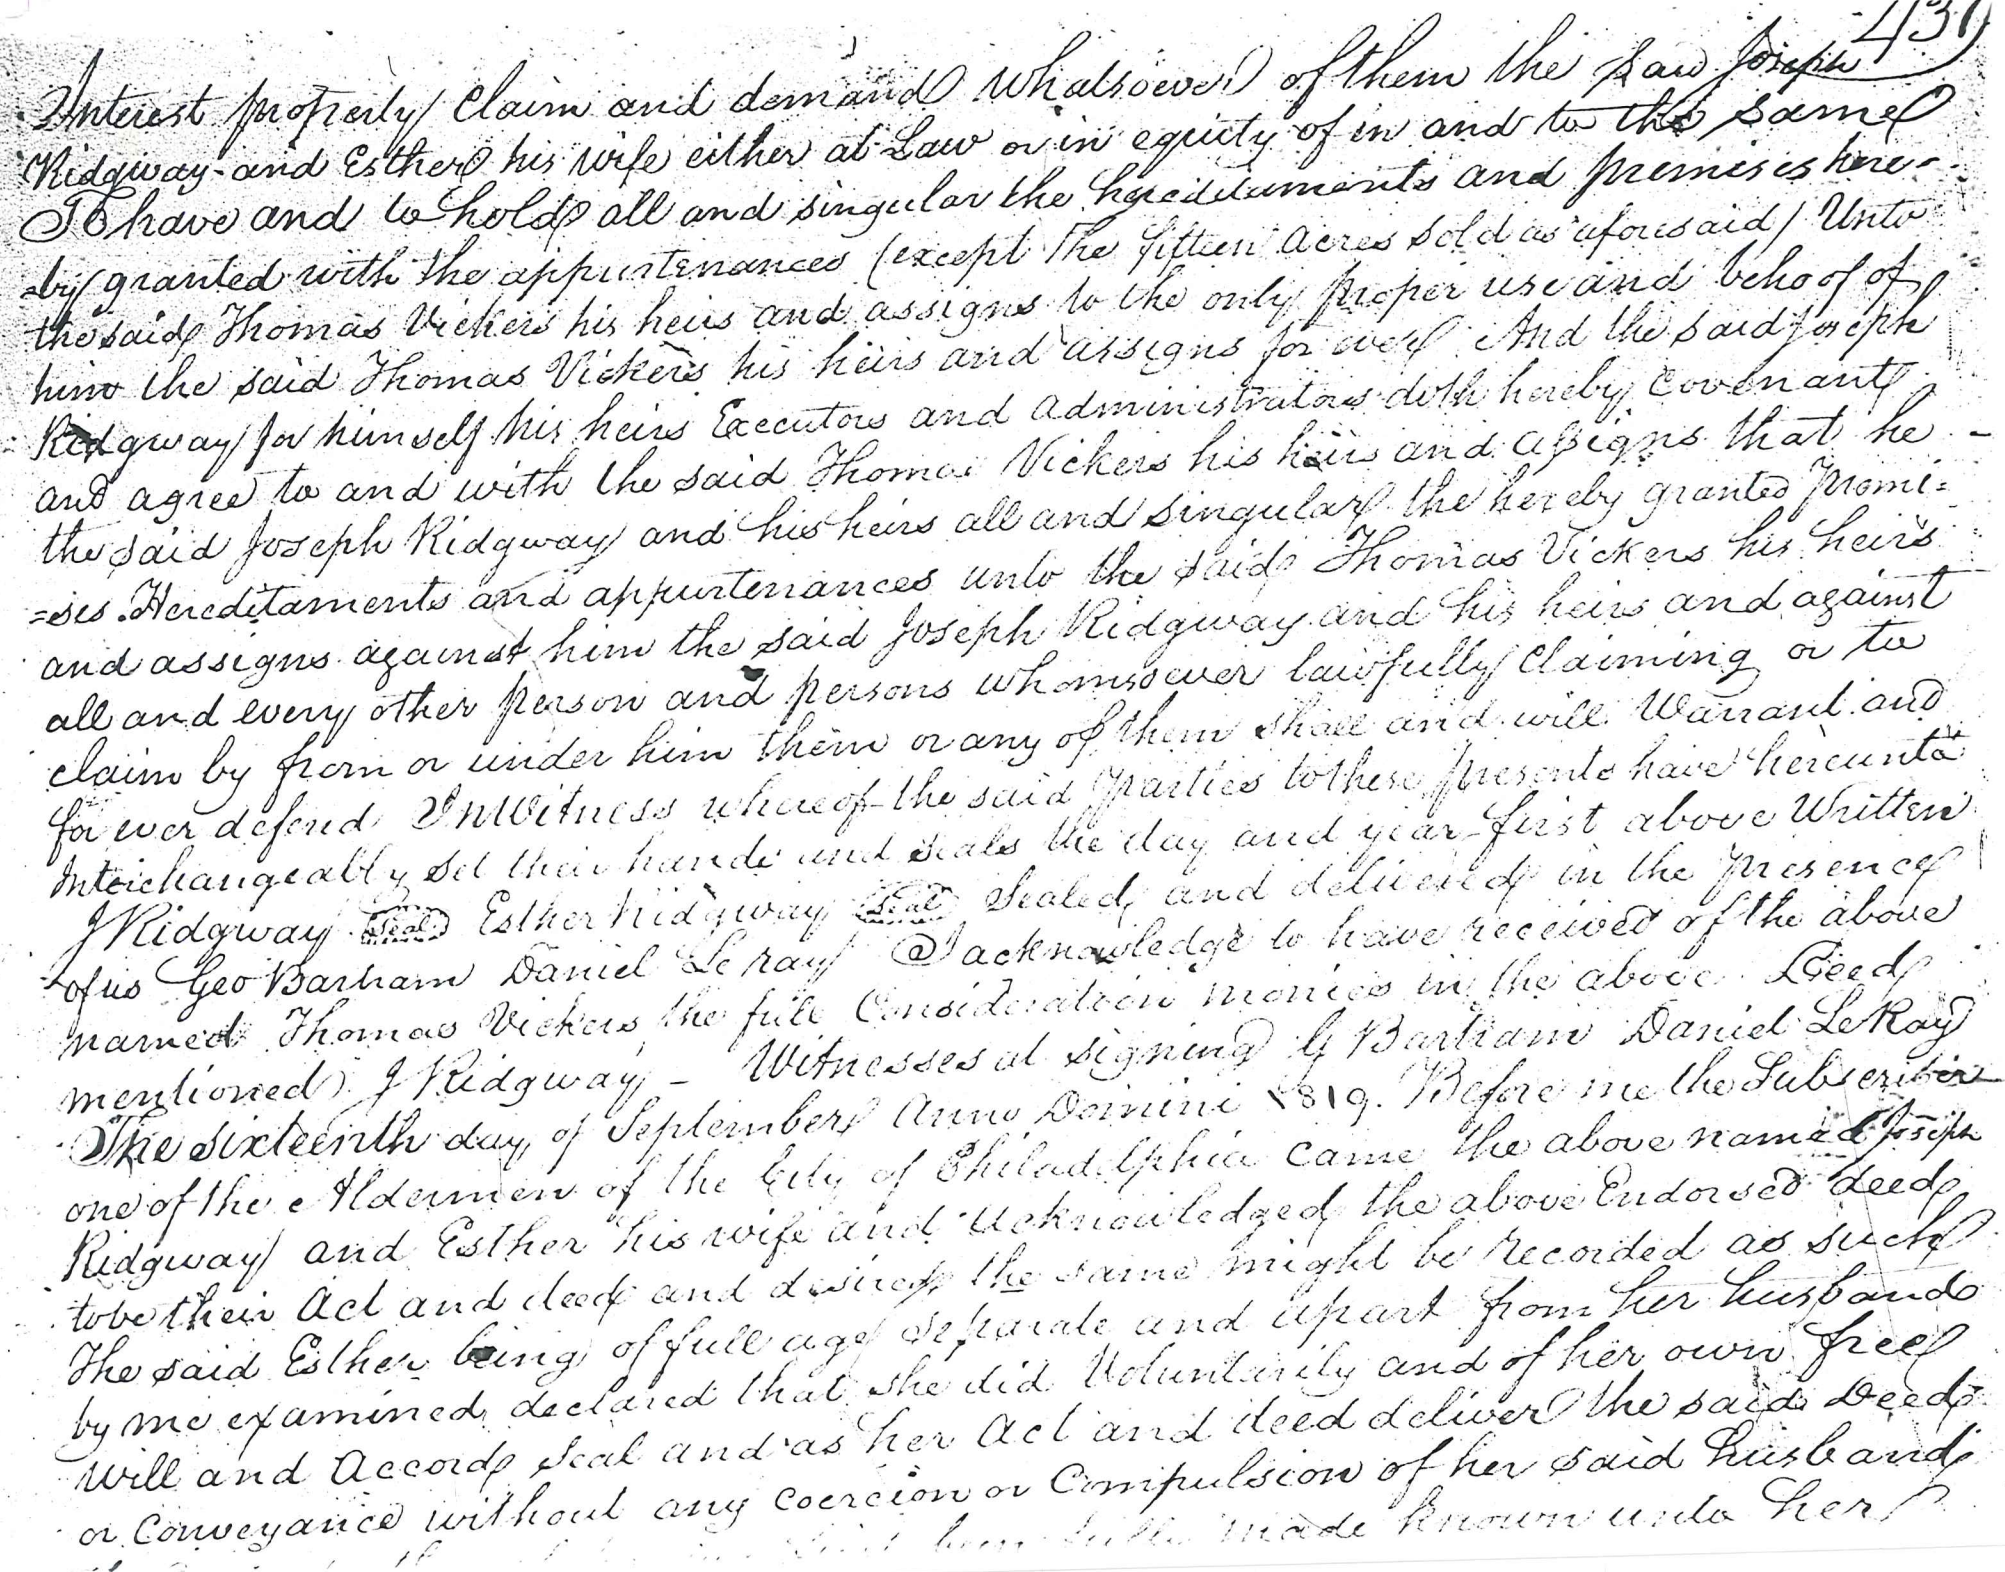 439
Interest property Claim and demand whatsoever of them the said Joseph
Ridgway and Esther his wife either at Law or in equity of in and to the same
To have and to hold all and singular the hereditaments and premises here-
-by granted with the appurtenances (except The fifteen acres sold as aforesaid) Unto
the said Thomas Vickers his heirs and assigns to the only proper use and behoof of
him the said Thomas Vickers his heirs and assigns for ever And the said Joseph
Ridgway for himself his heirs Executors and administrators doth hereby Covenant
and agree to and with the said Thomas Vickers his heirs and assigns that he -
the said Joseph Ridgway and his heirs all and singular the hereby granted Premi=
=ses Hereditaments and appurtenances unto the said Thomas Vickers his heirs
and assigns against him the said Joseph Ridgway and his heirs and against
all and every other person and persons whomsoever lawfully Claiming or to
claim by from or under him them or any of them shall and will Warrant and
for ever defend In Witness whereof the said Parties to these presents have hereunto
Interchangeably set their hands and seals the day and year first above Written
J Ridgway Seal Esther Ridgway Seal Sealed and delivered in the presence
of us Geo Bartram Daniel Le Ray I acknowledge to have received of the above
named Thomas Vickers the full Consideration monies in the above Deed
mentioned J Ridgway - Witnesses at signing G Bartram Daniel LeRay
The sixteenth day of September Anno Domini 1819. Before me the Subscriber
one of the Aldermen of the City of Philadelphia came the above named Joseph
Ridgway and Esther his wife and acknowledged the above Endorsed deed
to be their Act and deed and desired the same might be recorded as such
The said Esther being of full age separate and apart from her husband
by me examined declared that she did Voluntarily and of her own free
will and Accord seal and as her Act and deed deliver the said Deed
or Conveyance without any coercion or Compulsion of her said husband
been fully made known unto her